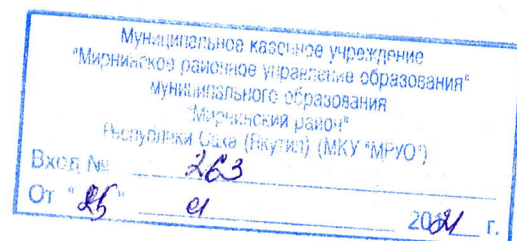 Муниципальное казенное учреждение
"Мирнинское районное управление образования"
муниципального образования
"Мирнинский район"
Республики Саха (Якутия) (МКУ "МРУО")
Вход № 263
От "25" 01 2021 г.